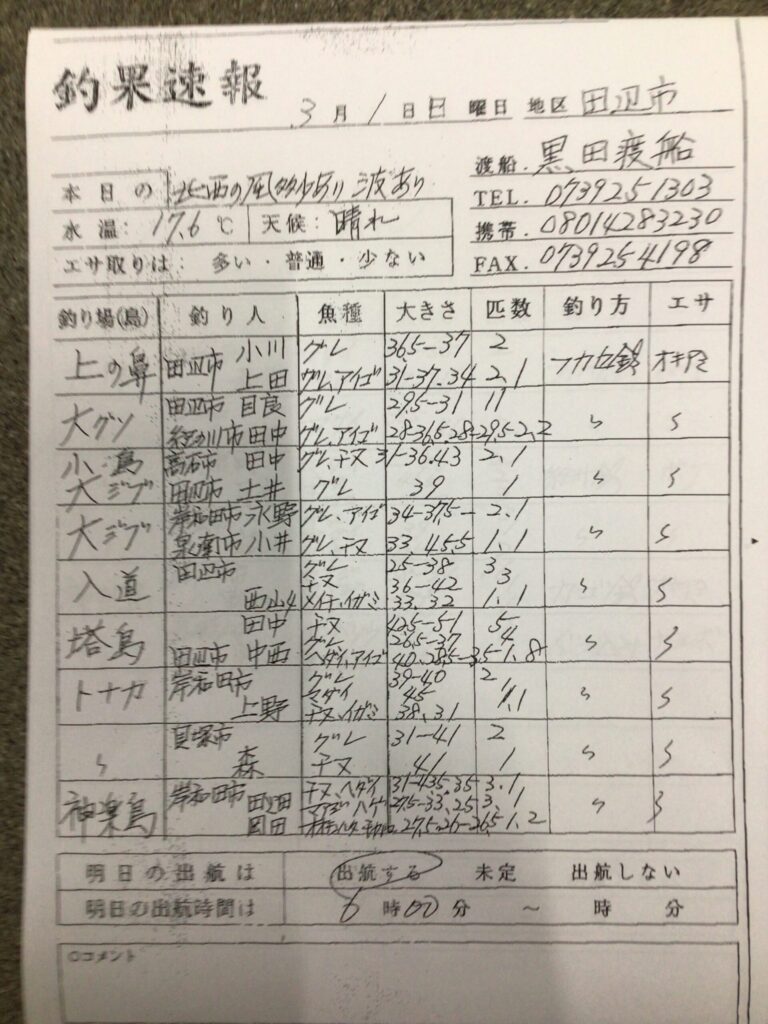 釣果速報
3月1日日曜日 地区 田辺市
渡船. 黒田渡船
本日の 北西の風多少あり 波あり
TEL. 0739251303
水温: 17.6℃ 天候: 晴れ
携帯. 08014283230
エサ取りは: 多い・普通・少ない
FAX. 0739254198
釣り場(島) 釣り人 魚種 大きさ 匹数 釣り方 エサ
上の鼻 田辺市 小川 グレ 36.5-37 2 フカセ オキアミ
上田 グレ、アイゴ 31-37.34 2.1
大グソ 田辺市 目良 グレ 29.5-31 11 〃 〃
紀の川市 田中 グレ、アイゴ 28-36.5.28-29.5 2.2
小島 高石市 田中 グレ、チヌ 31-36.43 2.1
大ジブ 田辺市 土井 グレ 39 1 〃 〃
大ジブ 岸和田市 永野 グレ、アイゴ 34-37.5- 2.1 〃 〃
泉南市 小井 グレ、チヌ 33 45.5 1.1
入道 田辺市 グレ 25-38 3 〃 〃
チヌ 36-42 3
西山 メイチ、イガミ 33.32 1.1
塔島 田中 チヌ 42.5-51 5 〃 〃
グレ 26.5-37 4
田辺市 中西 ヘダイ、アイゴ 40.28.5-35 1.8
トナカ 岸和田市 グレ 39-40 2 〃 〃
マダイ 45 1
上野 チヌ、イガミ 38.31 1.1
〃 貝塚市 グレ 31-41 2 〃 〃
森 チヌ 41 1
神楽島 岸和田市 チヌ、ヘダイ 31-43.5.35 3.1 〃 〃
田辺 27.5-33.25 3.1
岡田 27.5.26-26.5 1.2
明日の出航は 出航する 未定 出航しない
明日の出航時間は 6時00分 ~ 時 分
○コメント